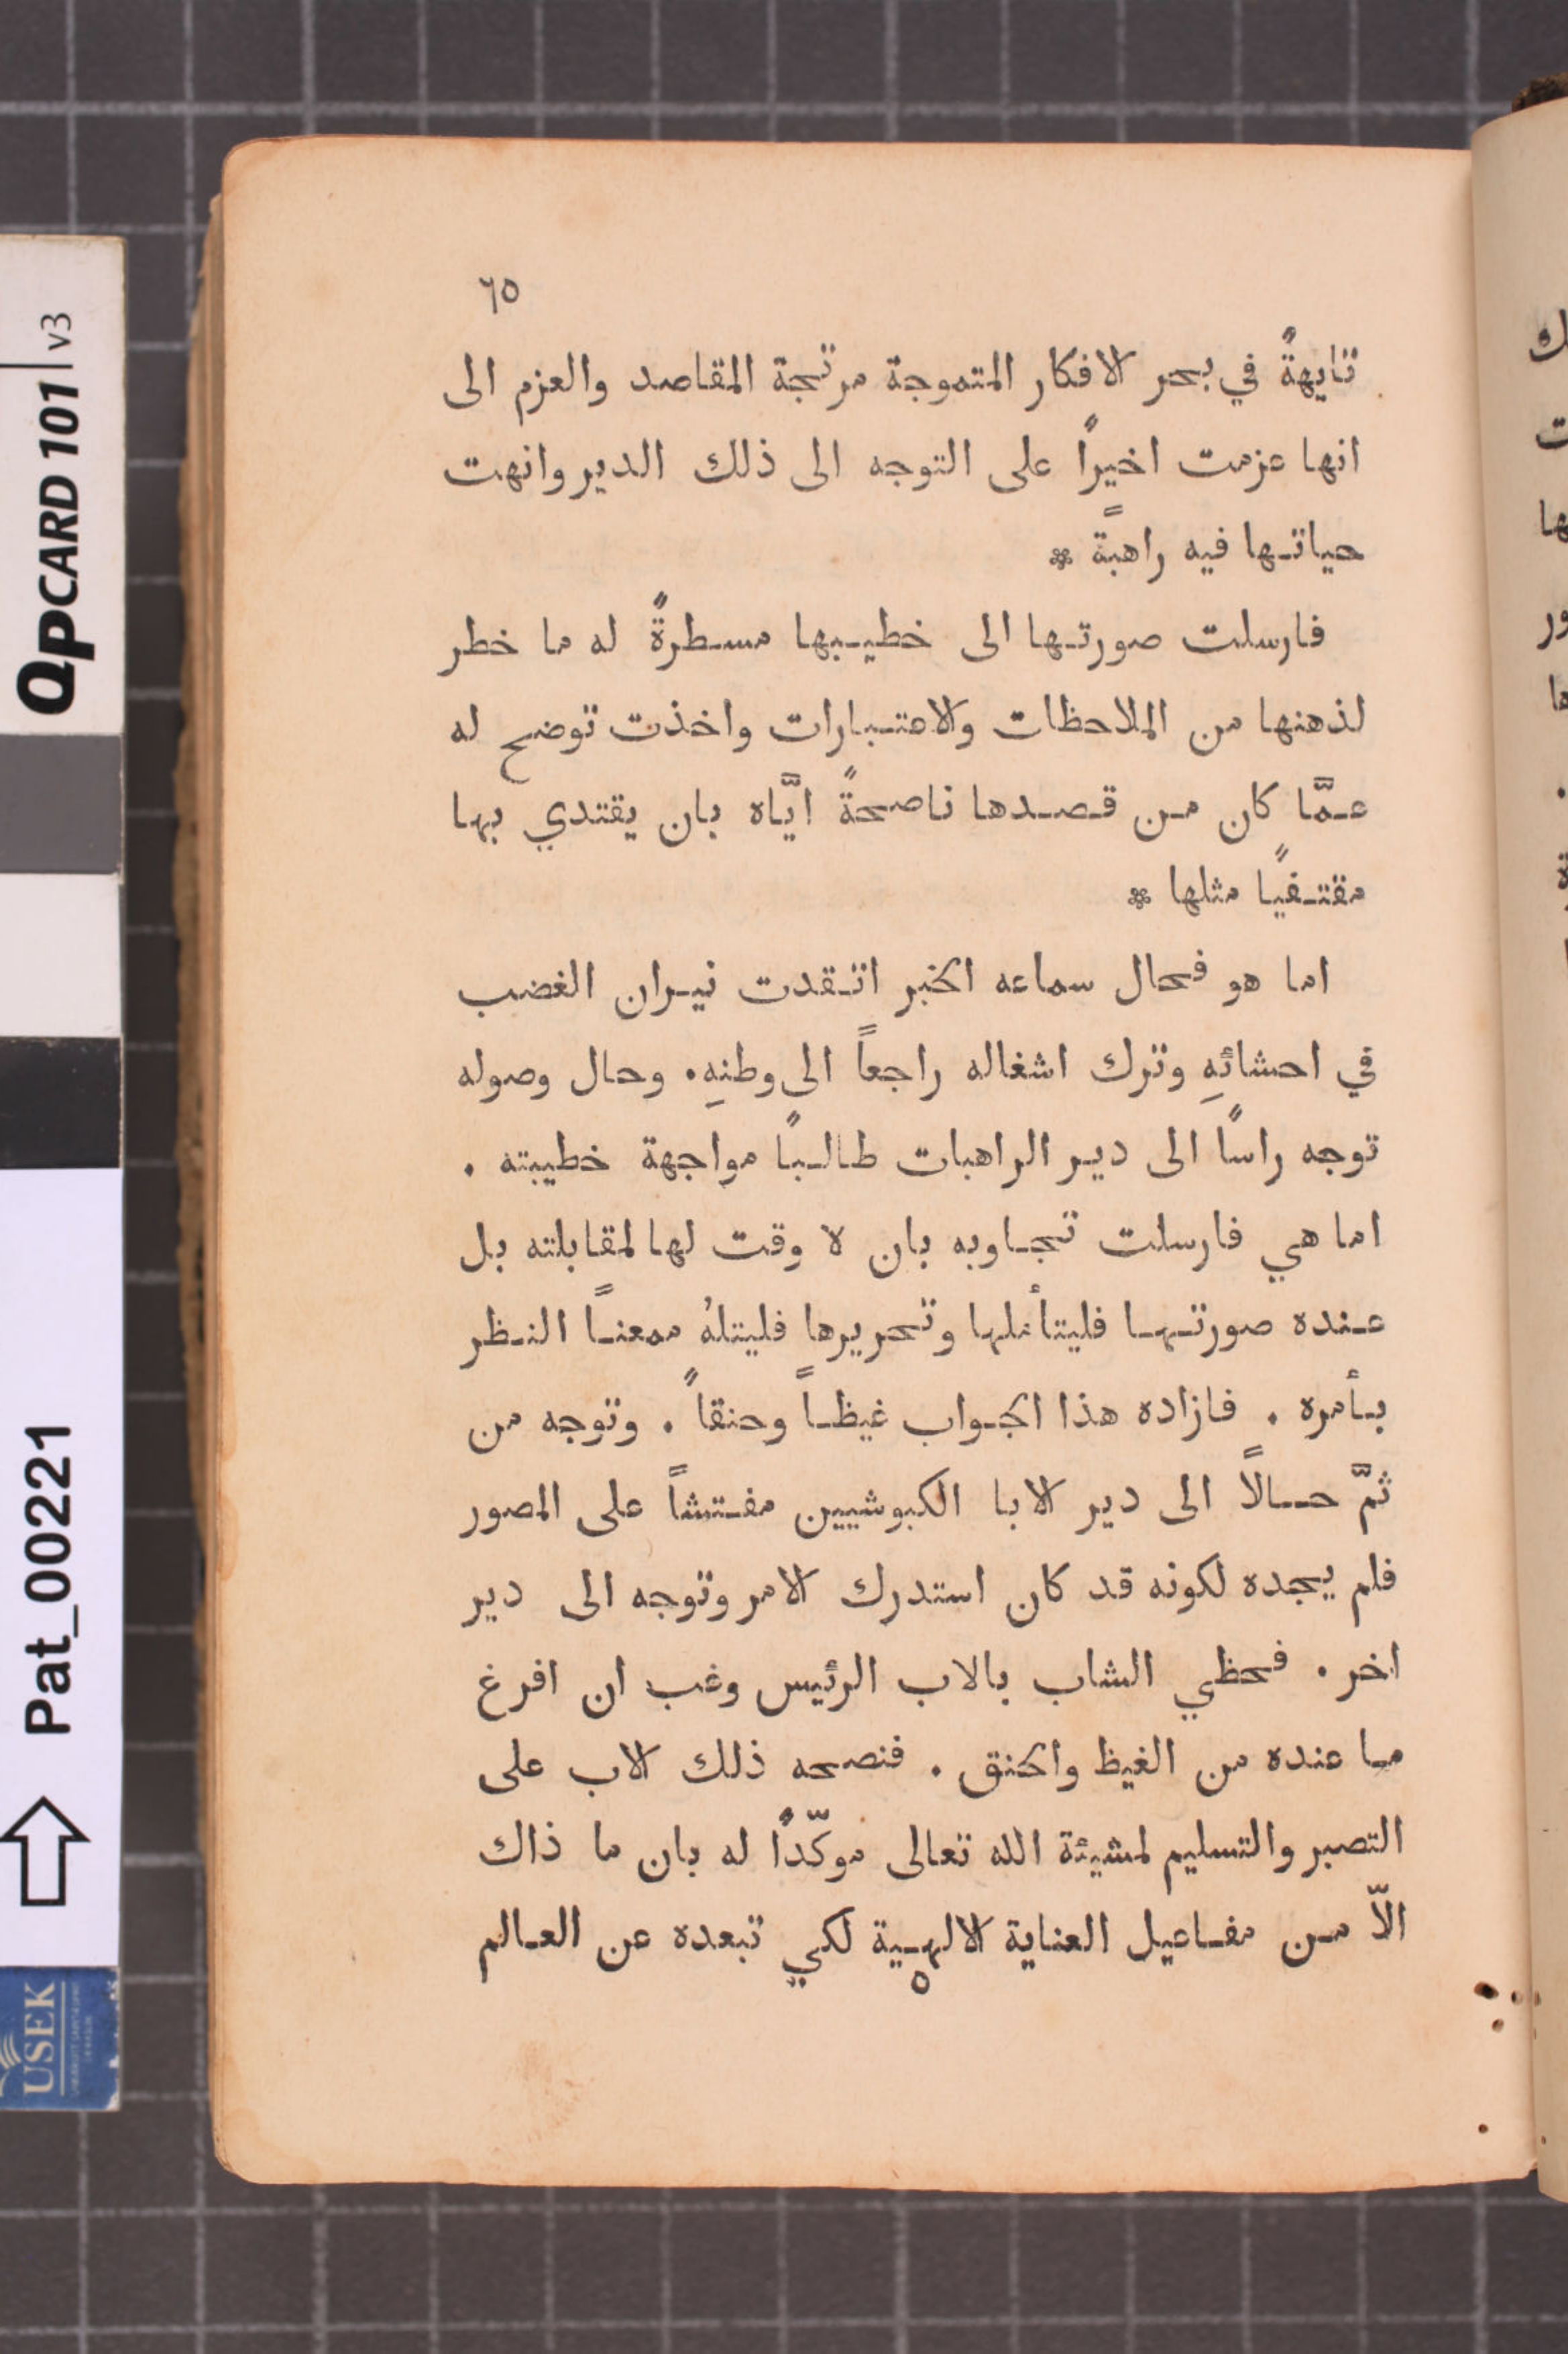 ٦٥
تايهةً في بحر الافكار المتموجة مرتجة المقاصد والعزم الى
انها عزمت اخيرًا على التوجه الى ذلك الدير وانهت
حياتها فيه راهبةً *
فارسلت صورتها الى خطيبها مسطرةً له ما خطر
لذهنها من الملاحظات والاعتبارات واخذت توضح له
عمَّا كان من قصدها ناصحةً ايَّاه بان يقتدي بها
مقتفيًا مثلها *
اما هو فحال سماعه الخبر اتقدت نيران الغضب
في احشائهِ وترك اشغاله راجعاً الى وطنهِ. وحال وصوله
توجه راسًا الى دير الراهبات طالبًا مواجهة خطيبته .
اما هي فارسلت تجاوبه بان لا وقت لها لمقابلته بل
عنده صورتها فليتأملها وتحريرها فليتلهُ ممعناً النظر
بأمره . فازاده هذا الجواب غيظاً وحنقاً . وتوجه من
ثمَّ حالاً الى دير الابا الكبوشيين مفتشاً على المصور
فلم يجده لكونه قد كان استدرك الامر وتوجه الى دير
اخر . فحظي الشاب بالاب الرئيس وغب ان افرغ
ما عنده من الغيظ والحنق . فنصحه ذلك الاب على
التصبر والتسليم لمشيئة الله تعالى موكّدًا له بان ما ذاك
الاّ من مفاعيل العناية الالهية لكي تبعده عن العالم
٥
QPCARD 101 v3
Pat_00221
USEK